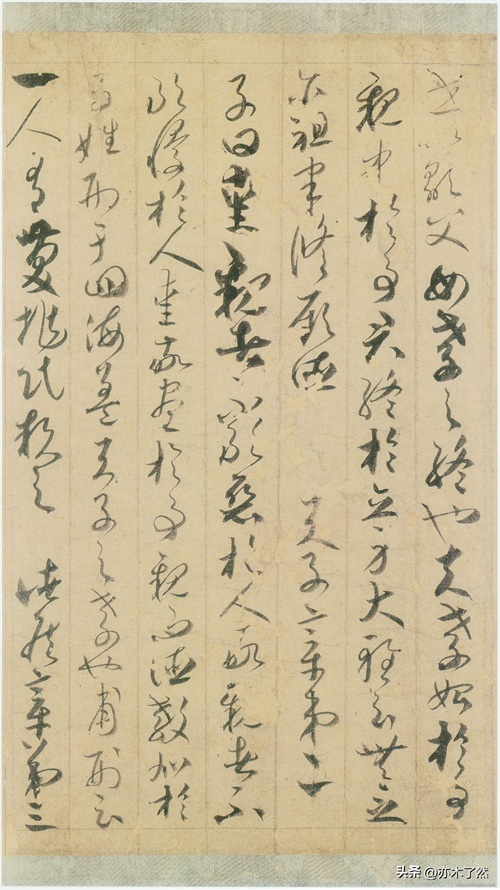 世以顯父母孝之終也夫孝始於事
親中於事君終於立身大雅云無念
尒祖聿脩厥德　天子章第二
子曰愛親者不敢惡於人敬親者不
敢慢於人愛敬盡於事親而德教加於
百姓刑于四海蓋天子之孝也甫刑云
一人有慶兆民賴之　諸侯章第三
头条 @亦木了然